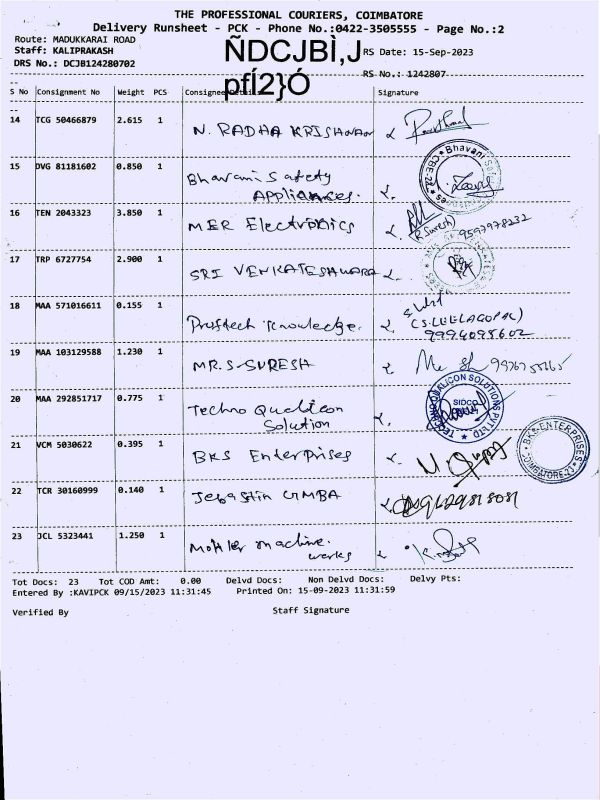 THE PROFESSIONAL COURIERS, COIMBATORE
Delivery Runsheet - PCK - Phone No.:0422-3505555 - Page No.:2
Route: MADUKKARAI ROAD
Staff: KALIPRAKASH RS Date: 15-Sep-2023
DRS No.: DCJB124280702 RS No.: 1242807
ÑDCJBÌ,J
pfÍ2}Ó
S No Consignment No Weight PCS Consignee Details Signature
14 TCG 50466879 2.615 1 N. RADHA KRISHNAN
15 DVG 81181602 0.850 1 Bhavani Safety
Appliances.
Bhavani
16 TEN 2043323 3.850 1 MER Electronics
(R.Suresh) 9597978232
17 TRP 6727754 2.900 1 SRI VENKATESHWARA
18 MAA 571016611 0.155 1 Proftech Knowledge.
(S.LEELAGOPAL)
9994098602
19 MAA 103129588 1.230 1 MR.S-SURESH
20 MAA 292851717 0.775 1 Techno Qualicon
Solution
QUALICON SOLUTIONS PVT LTD
SIDCO
21 VCM 5030622 0.395 1 BKS Enterprises
BKS ENTERPRISES
COIMBATORE-21
22 TCR 30160999 0.140 1 Jebastin GMBA
9629818081
23 JCL 5323441 1.250 1 Mohler machine.
works
Tot Docs: 23 Tot COD Amt: 0.00 Delvd Docs: Non Delvd Docs: Delvy Pts:
Entered By :KAVIPCK 09/15/2023 11:31:45 Printed On: 15-09-2023 11:31:59
Verified By Staff Signature